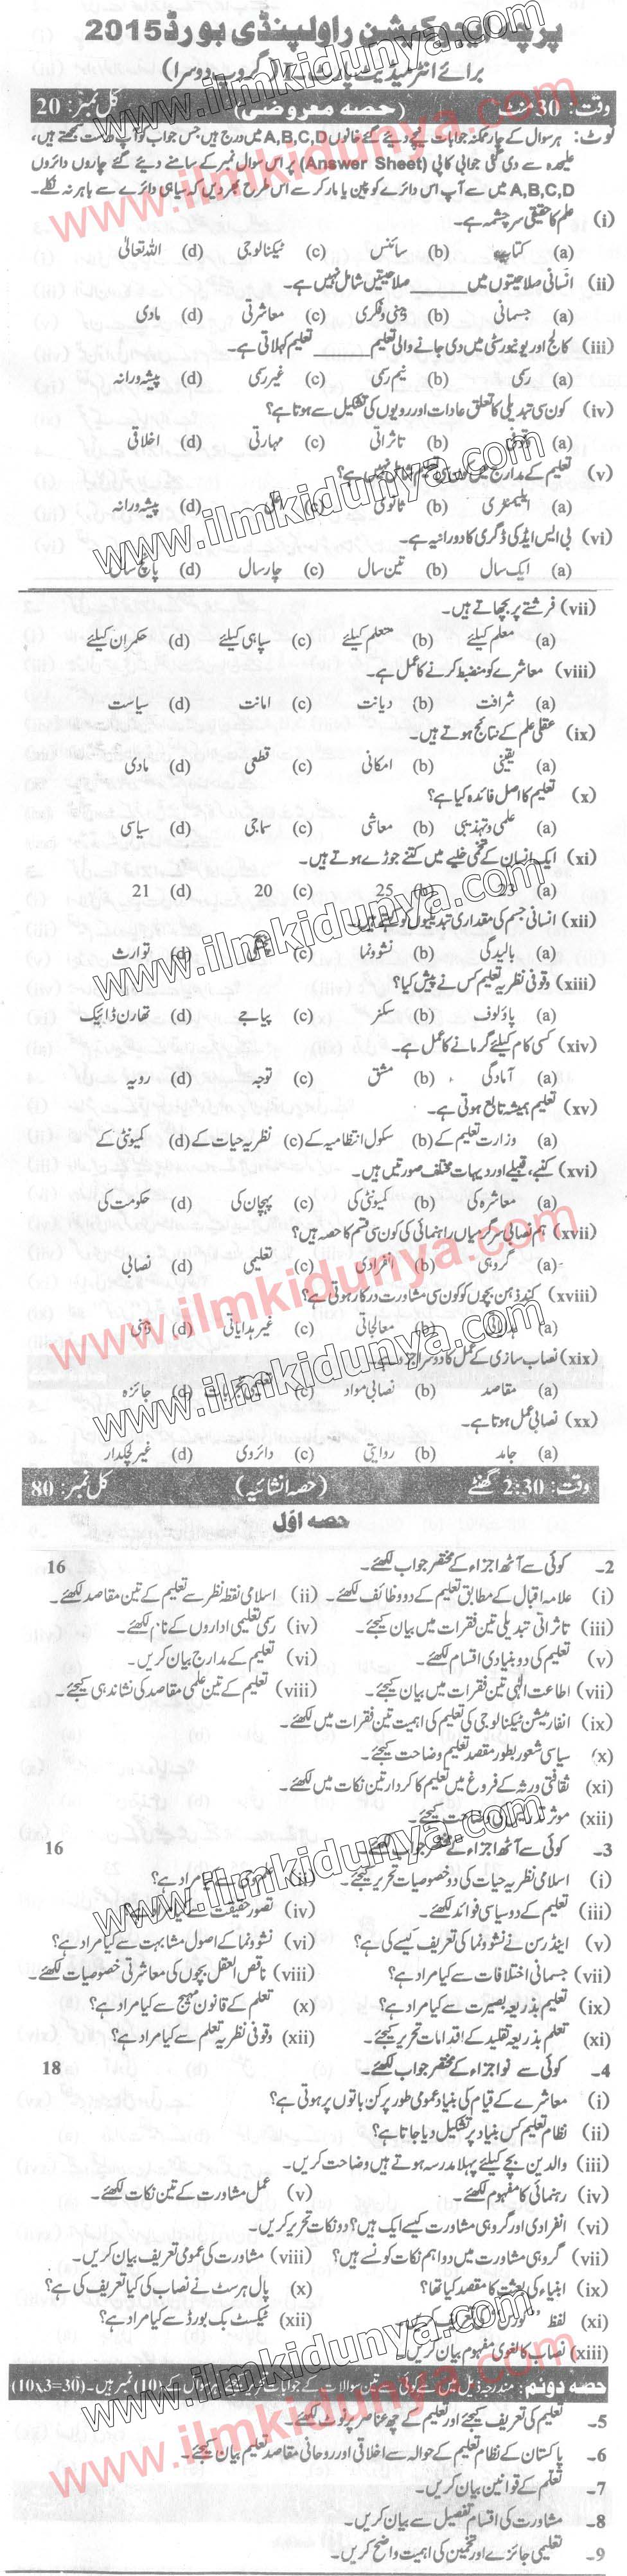 پرچہ ایجوکیشن راولپنڈی بورڈ 2015
برائے انٹرمیڈیٹ پارٹ- گروپ دوسرا)
وقت: 30 منٹ (حصہ معروضی) کل نمبر: 20
نوٹ: ہر سوال کے چار ممکنہ جوابات نیچے دیئے گئے خانوں A,B,C,D میں درج ہیں جس جواب کو آپ درست سمجھتے ہیں،
علیحدہ سے دی گئی جوابی کاپی (Answer Sheet) پر اس سوال نمبر کے سامنے دیئے گئے چاروں دائروں
A,B,C,D میں سے آپ اس دائرے کو پین یا مارکر سے اس طرح بھر دیں کہ سیاہی دائرے سے باہر نہ نکلے۔
(i) علم کا حقیقی سرچشمہ ہے۔
(a) کتاب (b) سائنس (c) ٹیکنالوجی (d) اللہ تعالیٰ
(ii) انسانی صلاحیتوں میں ______ صلاحیتیں شامل نہیں ہے۔
(a) جسمانی (b) ذہنی و فکری (c) معاشرتی (d) مادی
(iii) کالج اور یونیورسٹی میں دی جانے والی تعلیم ______ تعلیم کہلاتی ہے۔
(a) رسمی (b) نیم رسمی (c) غیر رسمی (d) پیشہ ورانہ
(iv) کون سی تبدیلی کا تعلق عادات اور رویوں کی تشکیل سے ہوتا ہے؟
(a) وقوفی (b) تاثراتی (c) مہارتی (d) اخلاقی
(v) تعلیم کے مدارج میں کون سی تعلیم شامل نہیں ہے؟
(a) ایلیمنٹری (b) ثانوی (c) اعلیٰ (d) پیشہ ورانہ
(vi) بی ایس ایڈ کی ڈگری کا دورانیہ ہے۔
(a) ایک سال (b) تین سال (c) چار سال (d) پانچ سال
(vii) فرشتے پر بچھاتے ہیں۔
(a) معلم کیلئے (b) متعلم کیلئے (c) سپاہی کیلئے (d) حکمران کیلئے
(viii) معاشرے کو منضبط کرنے کا عمل ہے۔
(a) شرافت (b) دیانت (c) امانت (d) سیاست
(ix) عقلی علم کے نتائج ہوتے ہیں۔
(a) یقینی (b) امکانی (c) قطعی (d) مادی
(x) تعلیم کا اصل فائدہ کیا ہے؟
(a) علمی و تہذیبی (b) معاشی (c) سماجی (d) سیاسی
(xi) ایک انسان کے تخمی خلیے میں کتنے جوڑے ہوتے ہیں۔
(a) 23 (b) 25 (c) 20 (d) 21
(xii) انسانی جسم کی مقداری تبدیلیوں کو کہتے ہیں۔
(a) بالیدگی (b) نشوونما (c) پختگی (d) توارث
(xiii) وقوفی نظریہ تعلیم کس نے پیش کیا؟
(a) پاؤلوف (b) سکنر (c) پیاجے (d) تھارن ڈائیک
(xiv) کسی کام کیلئے گرمانے کا عمل ہے۔
(a) آمادگی (b) مشق (c) توجہ (d) رویہ
(xv) تعلیم ہمیشہ تابع ہوتی ہے۔
(a) وزارت تعلیم کے (b) سکول انتظامیہ کے (c) نظریہ حیات کے (d) کمیونٹی کے
(xvi) کنبے، قبیلے اور دیہات مختلف صورتیں ہیں۔
(a) معاشرہ کی (b) کمیونٹی کی (c) پہچان کی (d) حکومت کی
(xvii) ہم نصابی سرگرمیاں راہنمائی کی کون سی قسم کا حصہ ہیں؟
(a) گروہی (b) انفرادی (c) تعلیمی (d) نصابی
(xviii) کند ذہن بچوں کو کون سی مشاورت درکار ہوتی ہے؟
(a) ہدایاتی (b) معالجاتی (c) غیر ہدایاتی (d) ذہنی
(xix) نصاب سازی کے عمل کا دوسرا جزو ہے۔
(a) مقاصد (b) نصابی مواد (c) تعلیمی تجربات (d) جائزہ
(xx) نصابی عمل ہوتا ہے۔
(a) جامد (b) روایتی (c) دائروی (d) غیر لچکدار
وقت: 2:30 گھنٹے (حصہ انشائیہ) کل نمبر: 80
حصہ اوّل
2- کوئی سے آٹھ اجزاء کے مختصر جواب لکھئے۔ 16
(i) علامہ اقبال کے مطابق تعلیم کے دو وظائف لکھئے۔ (ii) اسلامی نقطہ نظر سے تعلیم کے تین مقاصد لکھئے۔
(iii) تاثراتی تبدیلی تین فقرات میں بیان کیجئے۔ (iv) رسمی تعلیمی اداروں کے نام لکھئے۔
(v) تعلیم کی دو بنیادی اقسام لکھئے۔ (vi) تعلیم کے مدارج بیان کریں۔
(vii) اطاعت الٰہی تین فقرات میں بیان کیجئے۔ (viii) تعلیم کے تین علمی مقاصد کی نشاندہی کیجئے۔
(ix) انفارمیشن ٹیکنالوجی کی تعلیم کی اہمیت تین فقرات میں لکھئے۔
(x) سیاسی شعور بطور مقصد تعلیم وضاحت کیجئے۔
(xi) ثقافتی ورثہ کے فروغ میں تعلیم کا کردار تین نکات میں لکھئے۔
(xii) موثر کی وضاحت کیجئے۔
3- کوئی سے آٹھ اجزاء کے مختصر جواب لکھئے۔ 16
(i) اسلامی نظریہ حیات کی دو خصوصیات تحریر کیجئے۔ (ii) علم وحی سے کیا مراد ہے؟
(iii) تعلیم کے دو سیاسی فوائد لکھئے۔ (iv) تصور حقیقت سے کیا مراد ہے؟
(v) اینڈرسن نے نشوونما کی تعریف کیسے کی ہے؟ (vi) نشوونما کے اصول مشابہت سے کیا مراد ہے؟
(vii) جسمانی اختلافات سے کیا مراد ہے؟ (viii) ناقص العقل بچوں کی معاشرتی خصوصیات لکھئے۔
(ix) تعلیم بذریعہ بصیرت سے کیا مراد ہے؟ (x) تعلم کے قانون مہیج سے کیا مراد ہے؟
(xi) تعلم بذریعہ تقلید کے اقدامات تحریر کیجئے۔ (xii) وقوفی نظریہ تعلم سے کیا مراد ہے؟
4- کوئی سے نو اجزاء کے مختصر جواب لکھئے۔ 18
(i) معاشرے کے قیام کی بنیاد عمومی طور پر کن باتوں پر ہوتی ہے؟
(ii) نظام تعلیم کس بنیاد پر تشکیل دیا جاتا ہے؟
(iii) والدین بچے کیلئے پہلا مدرسہ ہوتے ہیں وضاحت کریں۔
(iv) رہنمائی کا مفہوم لکھئے۔ (v) عمل مشاورت کے تین نکات لکھئے۔
(vi) انفرادی اور گروہی مشاورت کیسے ایک ہیں؟ دو نکات تحریر کریں۔
(vii) گروہی مشاورت میں دو اہم نکات کونسے ہیں؟ (viii) مشاورت کی عمومی تعریف بیان کریں۔
(ix) انبیاء کی بعثت کا مقصد کیا تھا؟ (x) پال ہرسٹ نے نصاب کی کیا تعریف کی ہے؟
(xi) لفظ "کورس" کی تعریف کریں۔ (xii) ٹیکسٹ بک بورڈ سے کیا مراد ہے؟
(xiii) نصاب کا لغوی مفہوم بیان کریں۔
حصہ دوئم: مندرجہ ذیل میں سے کوئی سے تین سوالات کے جوابات تحریر کیجئے۔ ہر سوال کے (10) نمبر ہیں۔ (10x3=30)
5- تعلیم کی تعریف کیجئے اور تعلیم کے چھ عناصر پر نوٹ لکھئے۔
6- پاکستان کے نظام تعلیم کے حوالہ سے اخلاقی اور روحانی مقاصد تعلیم بیان کیجئے۔
7- تعلم کے قوانین بیان کریں۔
8- مشاورت کی اقسام تفصیل سے بیان کریں۔
9- تعلیمی جائزے اور تخمین کی اہمیت واضح کریں۔
www.ilmkidunya.com
www.ilmkidunya.com
www.ilmkidunya.com
www.ilmkidunya.com
www.ilmkidunya.com
www.ilmkidunya.com
www.ilmkidunya.com
www.ilmkidunya.com
www.ilmkidunya.com